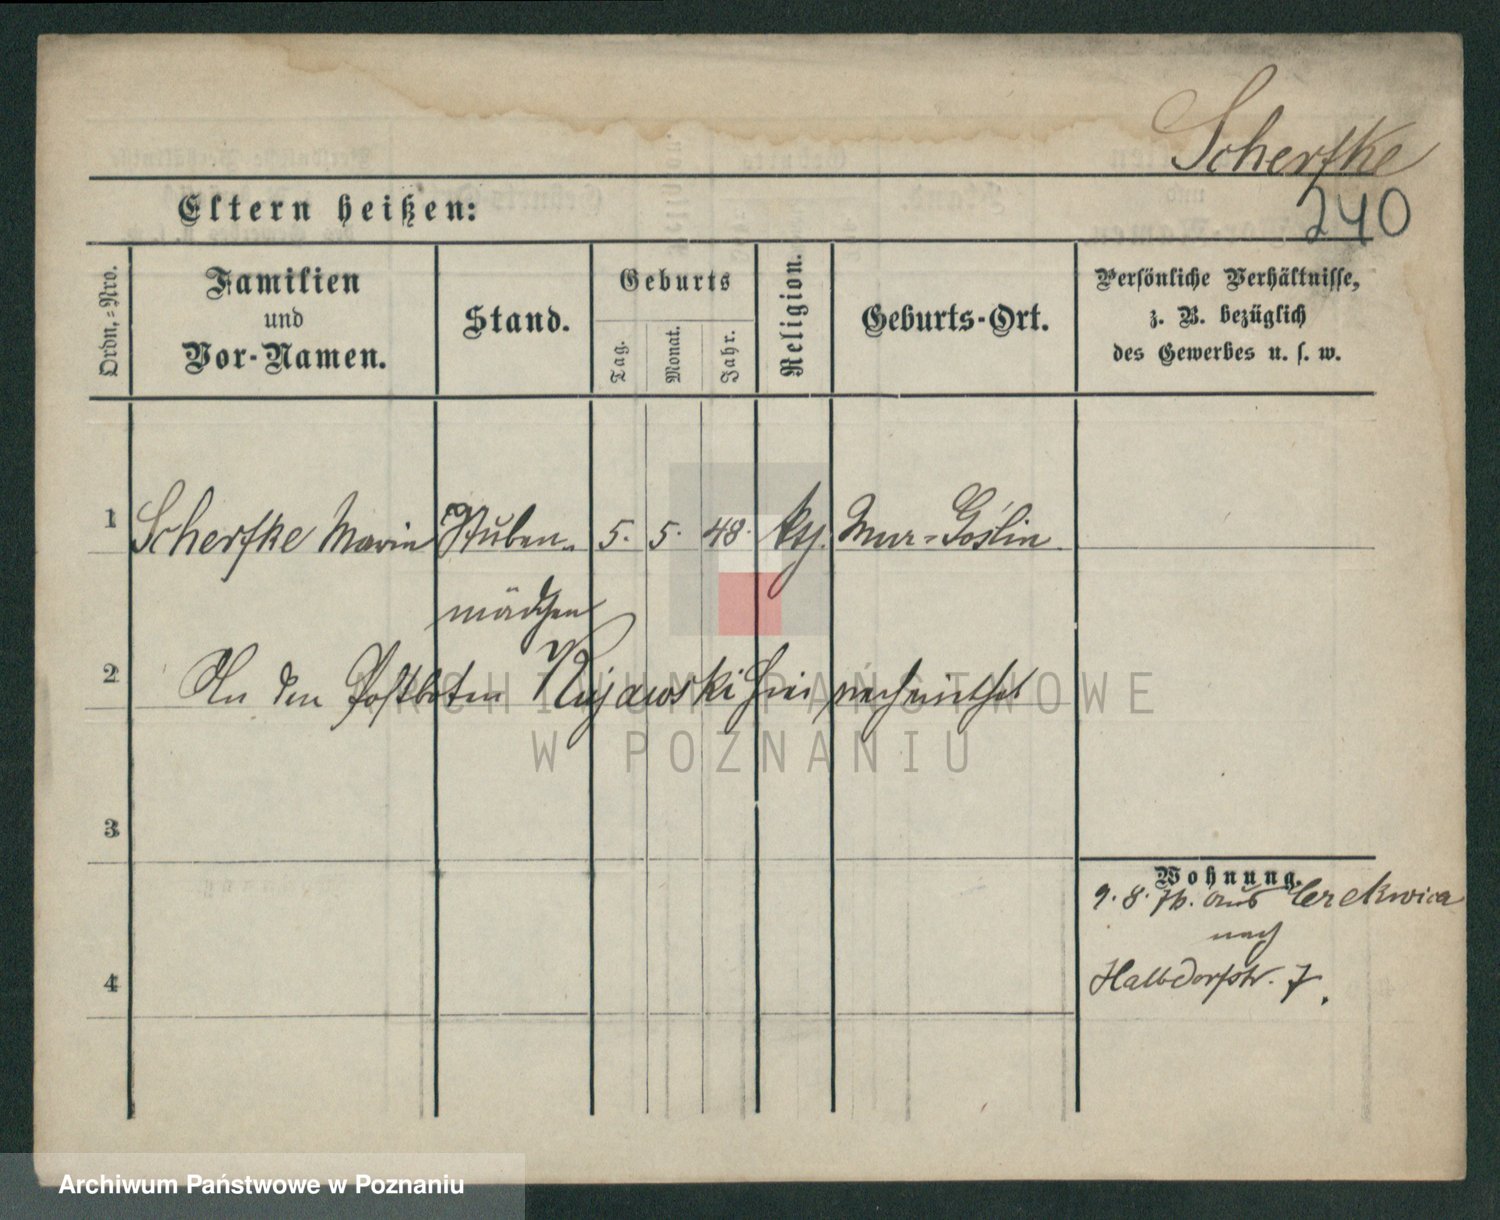 Scherfke
240
Eltern heißen:
Ordn.-Nro.
Familien
und
Vor-Namen.
Stand.
Geburts
Tag.
Monat.
Jahr.
Religion.
Geburts-Ort.
Persönliche Verhältnisse,
z. B. bezüglich
des Gewerbes u. s. w.
1 Scherfke Marie Stuben- 5. 5. 48. kth. Mur-Goslin
mädchen
2 An den Postboten Kujawski hier verheirathet
3
Wohnung.
9. 8. 76. aus Cerekwica
nach
4 Halbdorfstr. 7.
ARCHIWUM PAŃSTWOWE
W POZNANIU
Archiwum Państwowe w Poznaniu